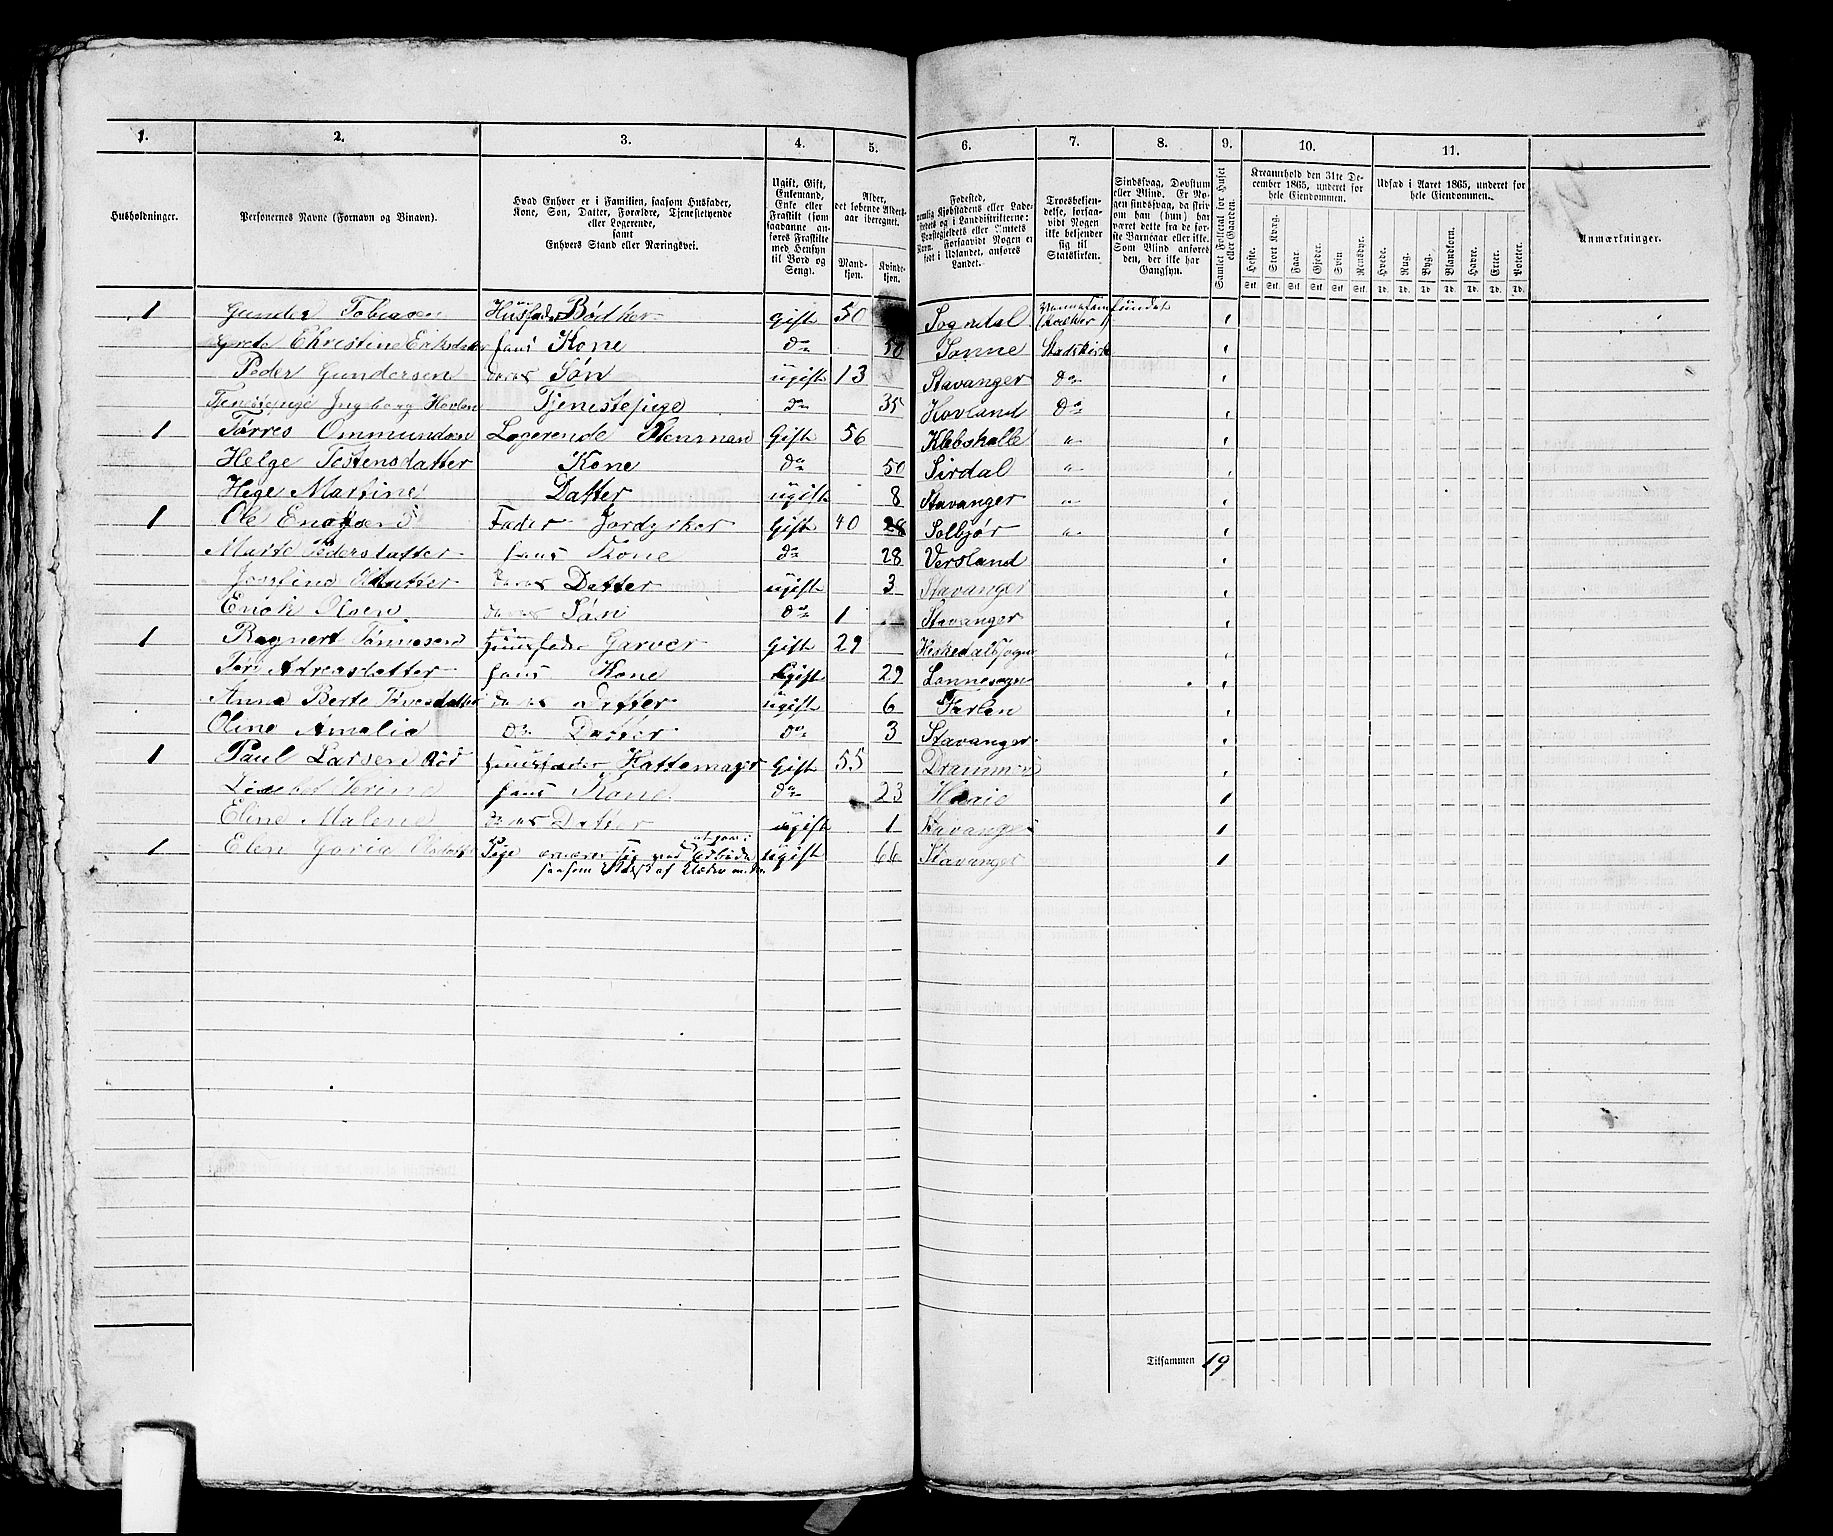 1. 2. 3. 4. 5. 6. 7. 8. 9. 10. 11.
Husholdninger.
Personernes Navne (Fornavn og Binavn).
Hvad Enhver er i Familien, saasom Husfader,
Kone, Søn, Datter, Forældre, Tjenestetyende
eller Logerende,
samt
Enhvers Stand eller Næringsvei.
Ugift, Gift,
Enkemand,
Enke eller
Fraskilt (som
saadanne anføres
Fraskilte
med Hensyn
til Bord og
Seng).
Alder,
det løbende Aldersaar
iberegnet.
Mandkjøn.
Kvindekjøn.
Fødested,
nemlig Kjøbstadens eller Ladestedets
eller i Landdistrikterne:
Præstegjeldets eller Amtets
Navn. Forsaavidt Nogen er
født i Udlandet, anføres
Landet.
Troesbekjendelse,
forsaavidt
Nogen
ikke bekjender
sig til
Statskirken.
Sindssvag, Døvstum
eller Blind. Er Nogen
sindssvag, da skrives
om han (hun) har
været dette fra de første
Barneaar eller ikke.
Som Blind anføres
den, der ikke har
Gangsyn.
Samlet Folketal for Huset
eller Gaarden.
Kreaturhold den 31te December
1865, underet for
hele Eiendommen.
Heste. Stort Kvæg. Faar. Gjeder. Svin. Rensdyr.
Stk. Stk. Stk. Stk. Stk. Stk.
Udsæd i Aaret 1865, underet for
hele Eiendommen.
Hvede. Rug. Byg. Blandkorn. Havre. Erter. Poteter.
Td. Td. Td. Td. Td. Td. Td.
Anmærkninger.
1 Gunder Tobiasen Husfader Bødker Gift 50 Sogndal
Grete Christine Eriksdatter hans Kone do 50 Statskirke
Peder Gundersen deres Søn ugift 13 Stavanger do
Tjenestepige Ingeborg Tjenestepige do 35 Hovland do
1 Tørres Ommundsen Logerende Gift 56 "
Helge Tostensdatter Kone do 50 Sirdal "
Hege Martine Datter ugift 8 Stavanger "
1 Ole Fader Jordyrker Gift 40 Solbjør "
Marte Pedersdatter hans Kone do 28
deres Datter ugift 3 Stavanger
Enok Olsen deres Søn do 1 Stavanger
1 Ragnert Tønnesen Huusfader Garver Gift 29
Tori Adreasdatter hans Kone Gift 29
Anna Berte deres Datter ugift 6
Oline Amalia do Datter do 3 Stavanger
1 Paul Larsen Huusfader Hattemager Gift 55 Drammen
hans Kone do 23
Eline Malene deres Datter ugift 1 Stavanger
1 Elen Pige ernærer sig ved ugift 66 Stavanger 1
saasom af
Tilsammen 19